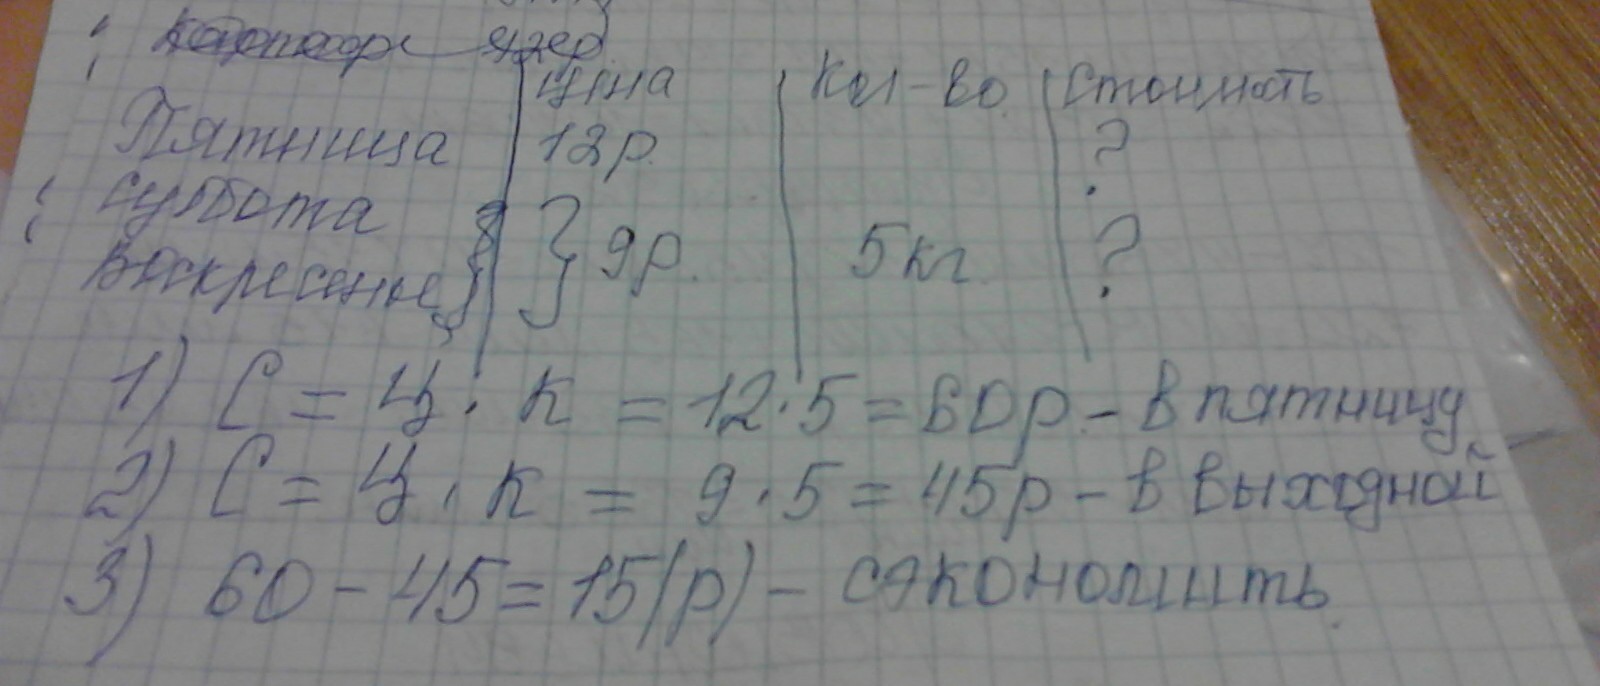 Цена Кол-во Стоимость
Пятница 12р. ?
Суббота
Воскресенье } } 9р. 5кг ?
1) С = Ц · К = 12 · 5 = 60р - в пятницу
2) С = Ц · К = 9 · 5 = 45р - в выходной
3) 60 - 45 = 15(р) - сэкономить